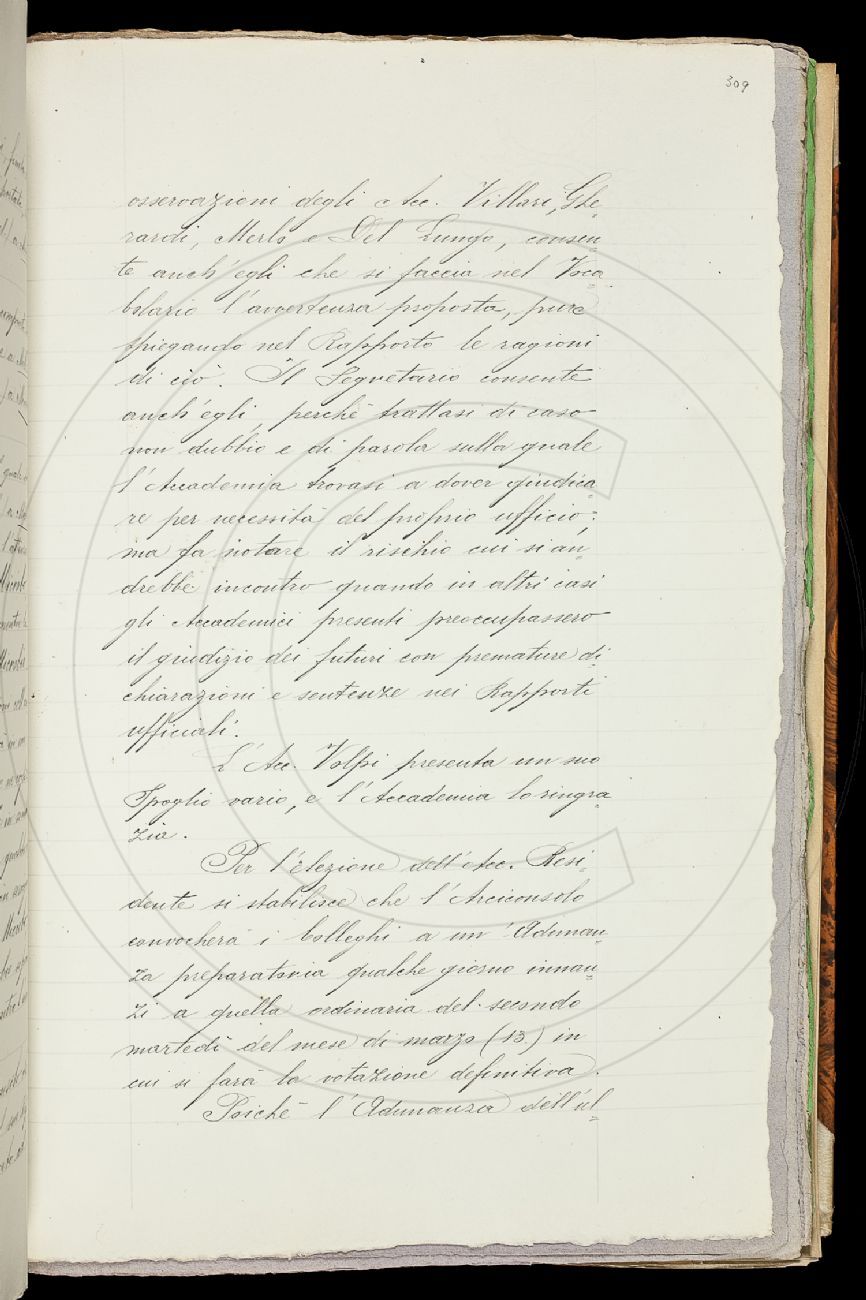 309
osservazioni degli Acc. Villari, Ghe-
rardi, Merlo e Del Lungo, consen-
te anch'egli che si faccia nel Voca-
bolario l'avvertenza proposta, pure
spiegando nel Rapporto le ragioni
di ciò. Il Segretario consente
anch'egli, perchè trattasi di caso
non dubbio e di parola sulla quale
l'Accademia trovasi a dover giudica-
re per necessità del proprio ufficio;
ma fa notare il rischio cui si an-
drebbe incontro quando in altri casi
gli Accademici presenti preoccupassero
il giudizio dei futuri con premature di-
chiarazioni e sentenze nei Rapporti
ufficiali.
L'Acc. Volpi presenta un suo
Spoglio vario, e l'Accademia lo ringra-
zia.
Per l'elezione dell'Acc. Resi-
dente si stabilisce che l'Arciconsolo
convocherà i Colleghi a un'Adunan-
za preparatoria qualche giorno innan-
zi a quella ordinaria del secondo
martedì del mese di marzo (13.) in
cui si farà la votazione definitiva.
Poichè l'Adunanza dell'ul-